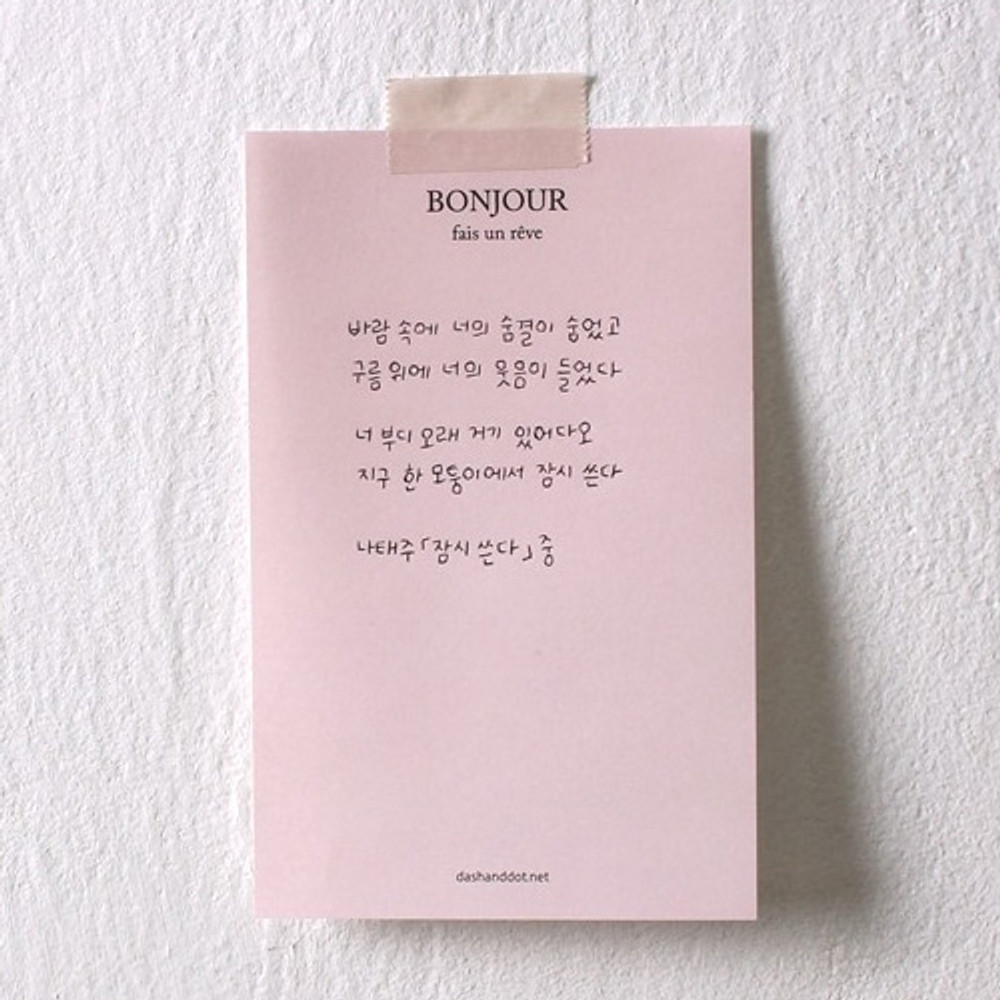 BONJOUR
fais un rêve
바람 속에 너의 숨결이 숨었고
구름 위에 너의 웃음이 들었다
너 부디 오래 거기 있어다오
지구 한 모퉁이에서 잠시 쓴다
나태주「잠시 쓴다」중
dashanddot.net